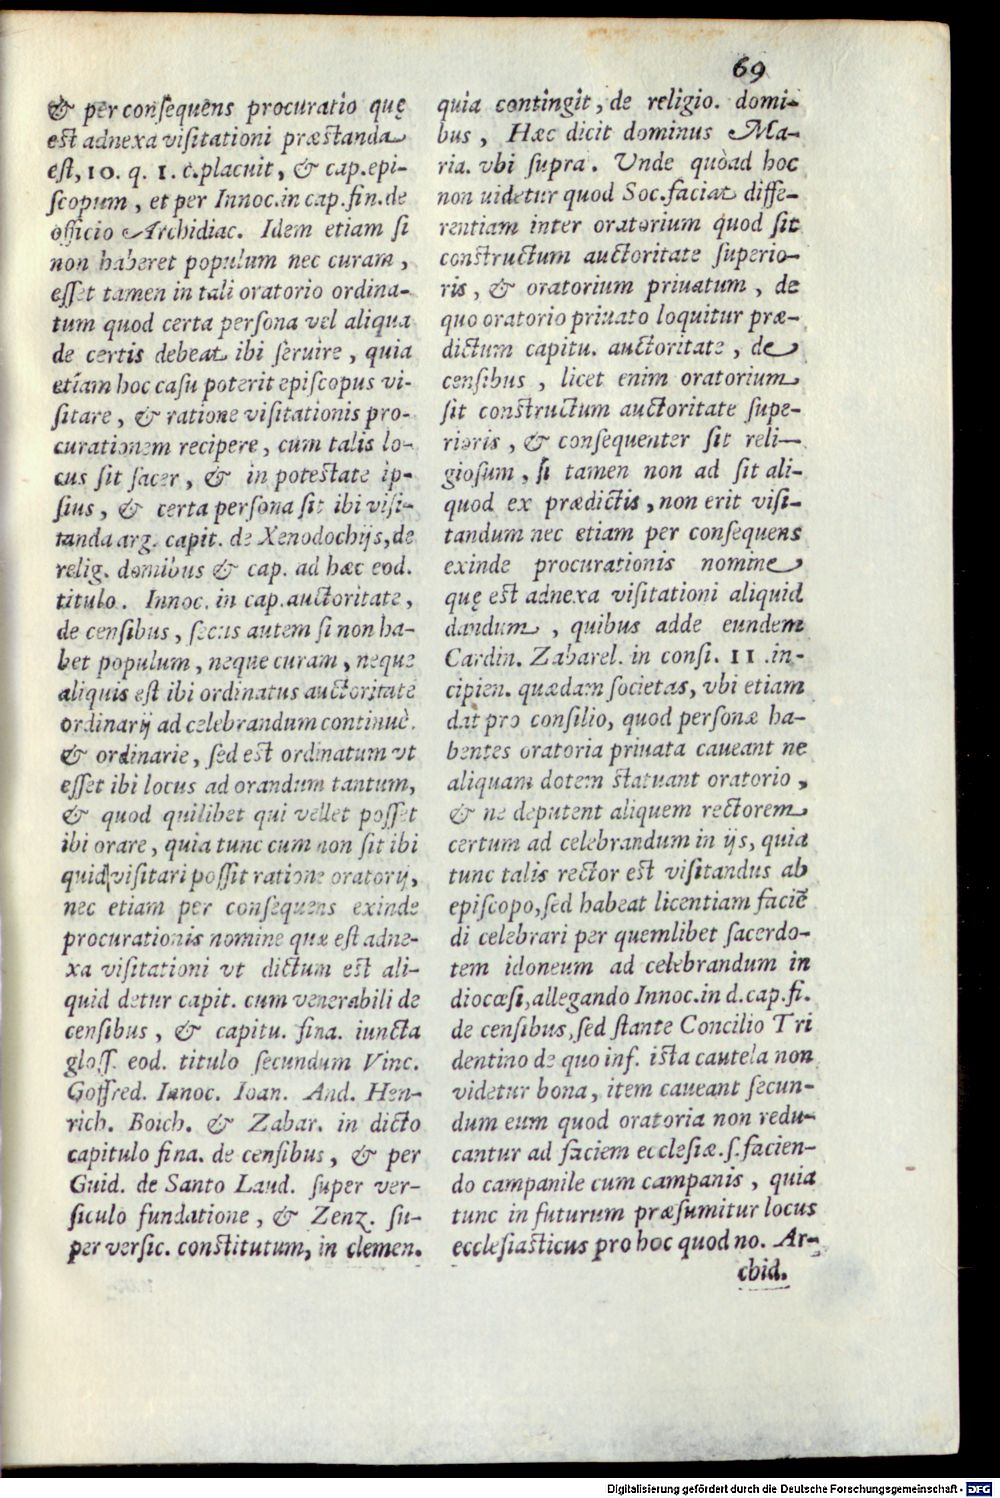 69
& per consequēns procuratio quę
est adnexa visitationi præstanda
est, 10. q. 1. c. placuit, & cap. epi-
scopum, et per Innoc. in cap. fin. de
officio Archidiac. Idem etiam si
non haberet populum nec curam,
esset tamen in tali oratorio ordina-
tum quod certa persona vel aliqua
de certis debeat ibi seruire, quia
etiam hoc casu poterit episcopus vi-
sitare, & ratione visitationis pro-
curationem recipere, cum talis lo-
cus sit sacer, & in potestate ip-
sius, & certa persona sit ibi visi-
tanda arg. capit. de Xenodochijs, de
relig. domibus & cap. ad hæc eod.
titulo. Innoc. in cap. auctoritate,
de censibus, secus autem si non ha-
bet populum, neque curam, neque
aliquis est ibi ordinatus auctoritate
ordinarij ad celebrandum continuè.
& ordinarie, sed est ordinatum vt
esset ibi locus ad orandum tantum,
& quod quilibet qui vellet posset
ibi orare, quia tunc cum non sit ibi
quid visitari possit ratione oratorij,
nec etiam per consequens exinde
procurationis nomine quæ est adne-
xa visitationi vt dictum est ali-
quid detur capit. cum venerabili de
censibus, & capitu. fina. iuncta
gloss. eod. titulo secundum Vinc.
Goffred. Innoc. Ioan. And. Hen-
rich. Boich. & Zabar. in dicto
capitulo fina. de censibus, & per
Guid. de Santo Laud. super ver-
siculo fundatione, & Zenz. su-
per versic. constitutum, in clemen.
quia contingit, de religio. domi-
bus, Hæc dicit dominus Ma-
ria. vbi supra. Unde quòad hoc
non uidetur quod Soc. faciat diffe-
rentiam inter oratorium quod sit
constructum auctoritate superio-
ris, & oratorium priuatum, de
quo oratorio priuato loquitur præ-
dictum capitu. auctoritate, de
censibus, licet enim oratorium
sit constructum auctoritate supe-
rioris, & consequenter sit reli-
giosum, si tamen non ad sit ali-
quod ex prædictis, non erit visi-
tandum nec etiam per consequens
exinde procurationis nomine
quę est adnexa visitationi aliquid
dandum, quibus adde eundem
Cardin. Zabarel. in consi. 11 .in-
cipien. quædam societas, vbi etiam
dat pro consilio, quod personæ ha-
bentes oratoria priuata caueant ne
aliquam dotem statuant oratorio,
& ne deputent aliquem rectorem
certum ad celebrandum in ijs, quia
tunc talis rector est visitandus ab
episcopo, sed habeat licentiam faciē
di celebrari per quemlibet sacerdo-
tem idoneum ad celebrandum in
diocæsi, allegando Innoc. in d. cap. fi.
de censibus, sed stante Concilio Tri
dentino de quo inf. ista cautela non
videtur bona, item caueant secun-
dum eum quod oratoria non redu-
cantur ad faciem ecclesiæ .s. facien-
do campanile cum campanis, quia
tunc in futurum præsumitur locus
ecclesiasticus pro hoc quod no. Ar-
chid.
Digitalisierung gefördert durch die Deutsche Forschungsgemeinschaft - DFG